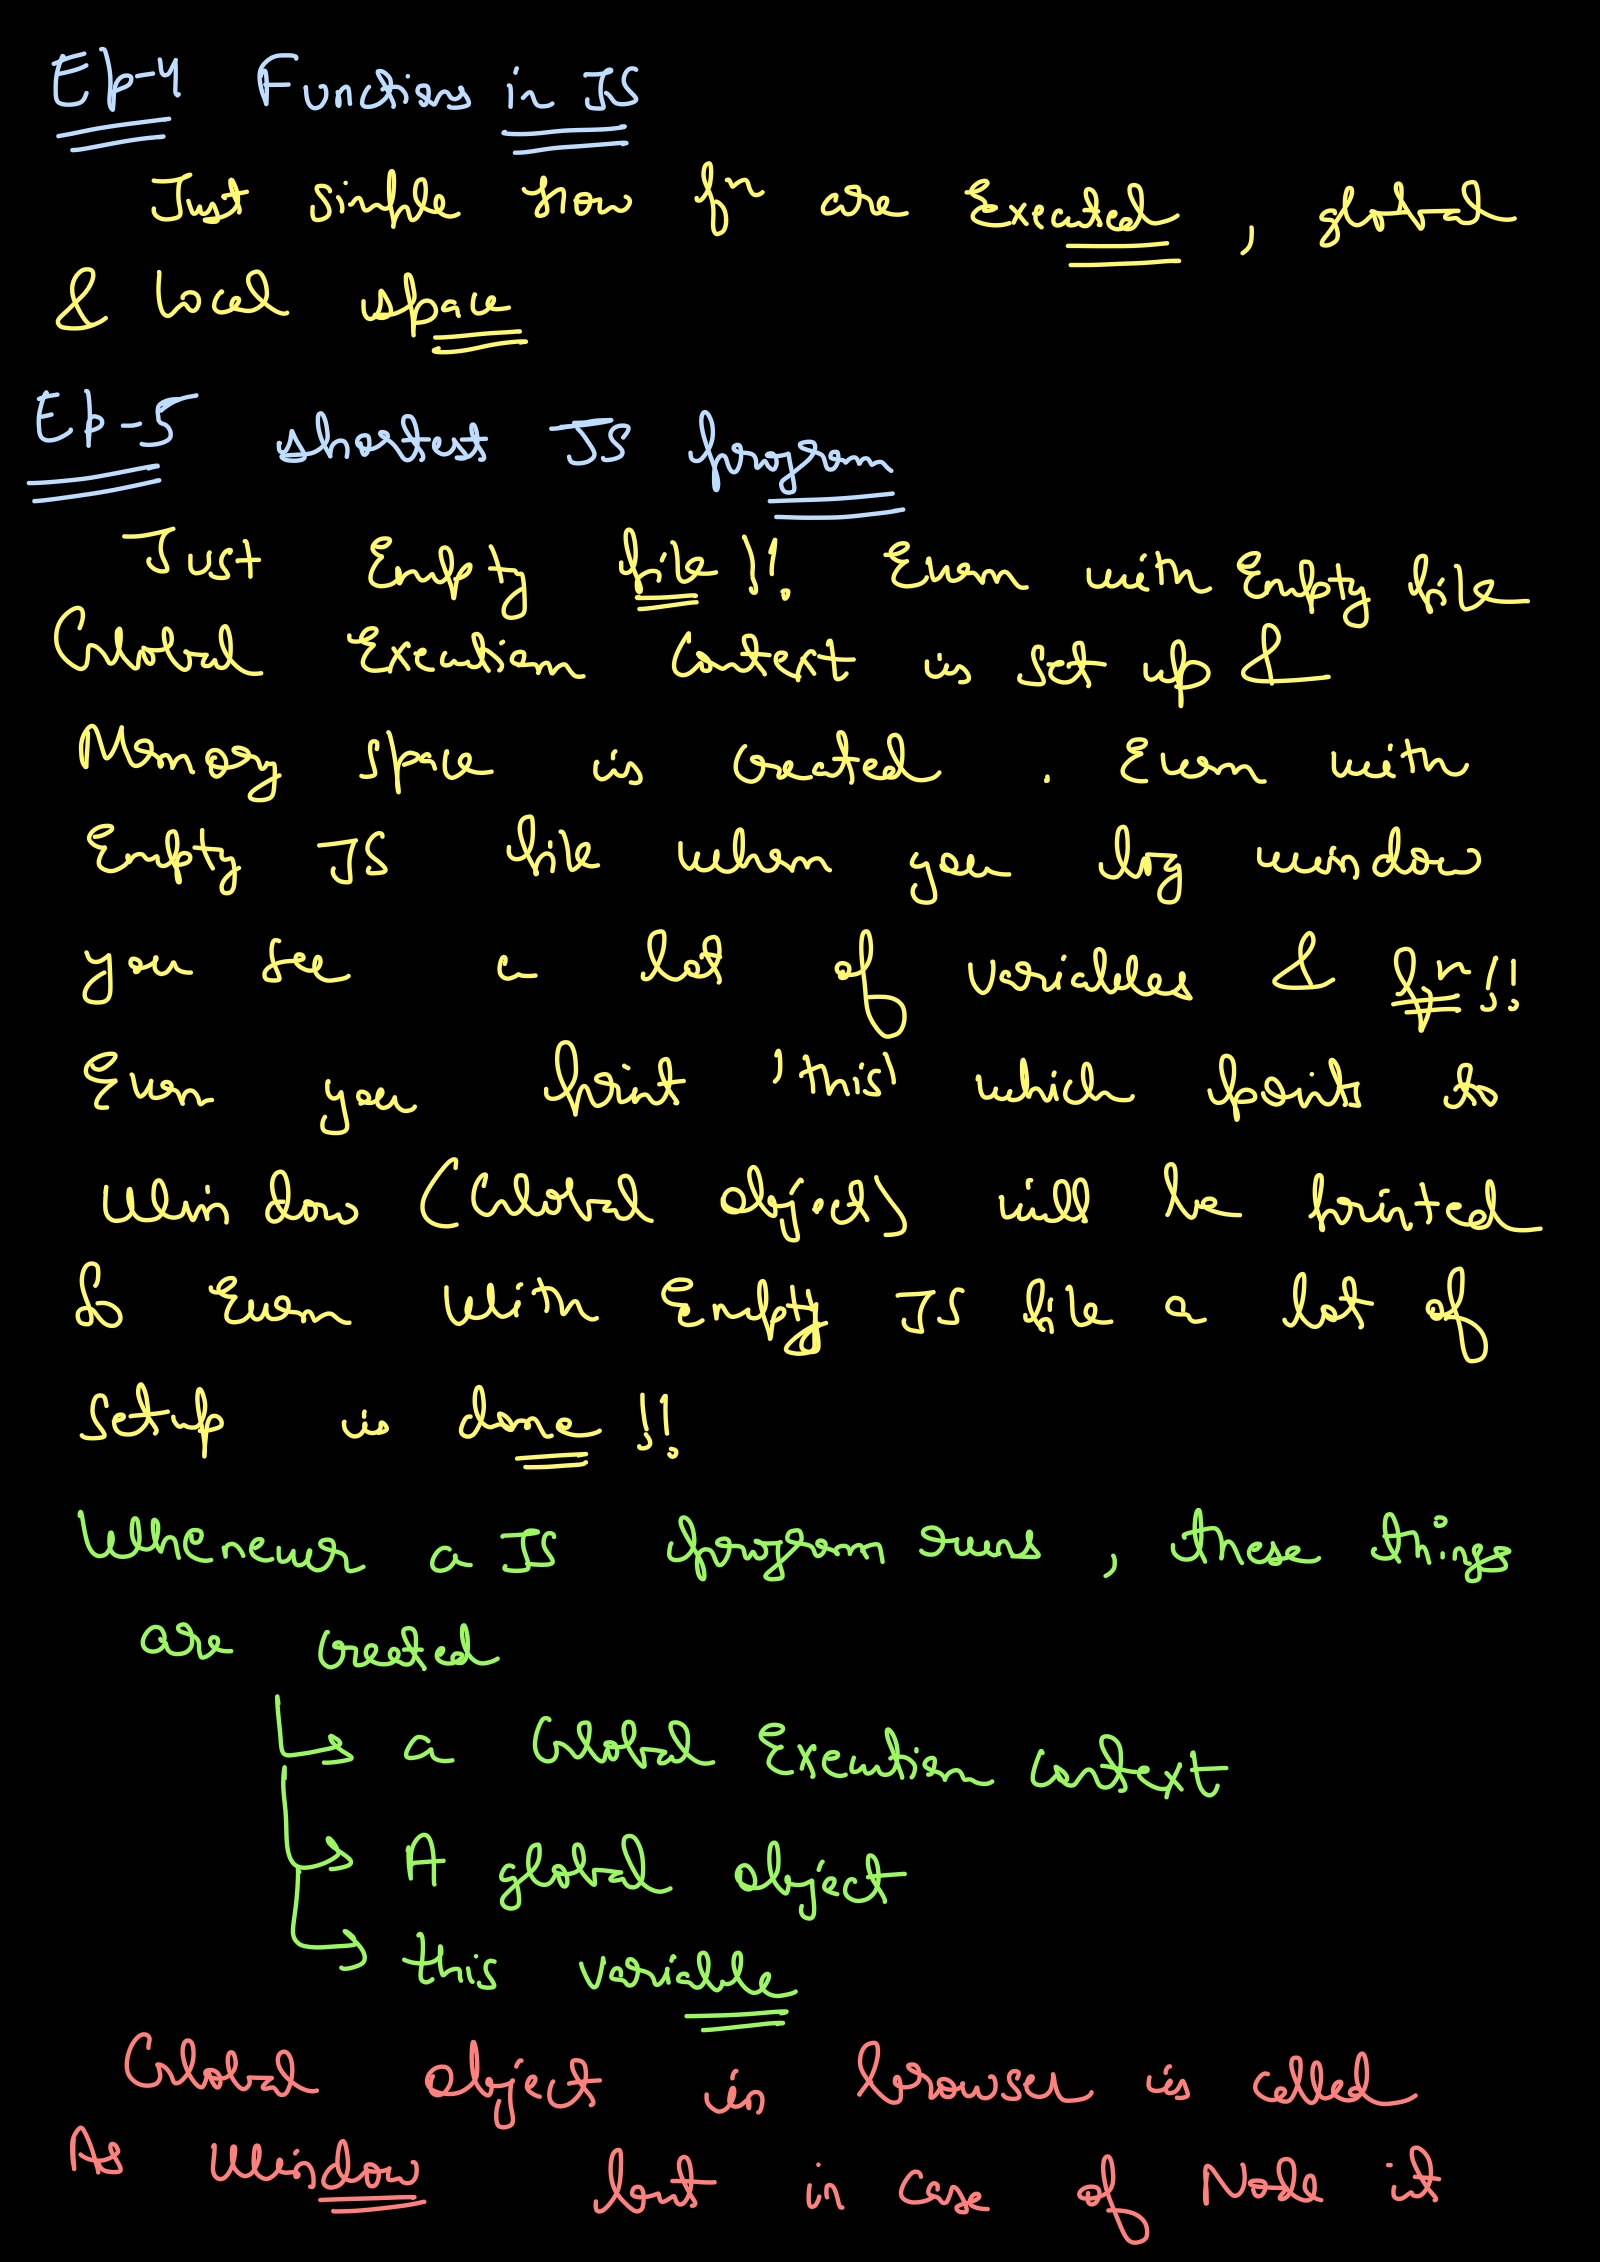 Ep-4 Functions in JS
Just simple how fⁿ are Executed , global
& local space
Ep-5 shortest JS program
Just Empty file !! Even with Empty file
Global Execution Context is set up &
Memory space is created . Even with
Empty JS file when you log window
you see a lot of variables & fⁿ !!
Even you print 'this' which points to
Window (Global object) will be printed
So Even With Empty JS file a lot of
setup is done !!
Whenever a JS program runs , these things
are created
↳ a Global Execution context
↳ A global object
↳ this variable
Global object in browser is called
As Window but in case of Node it